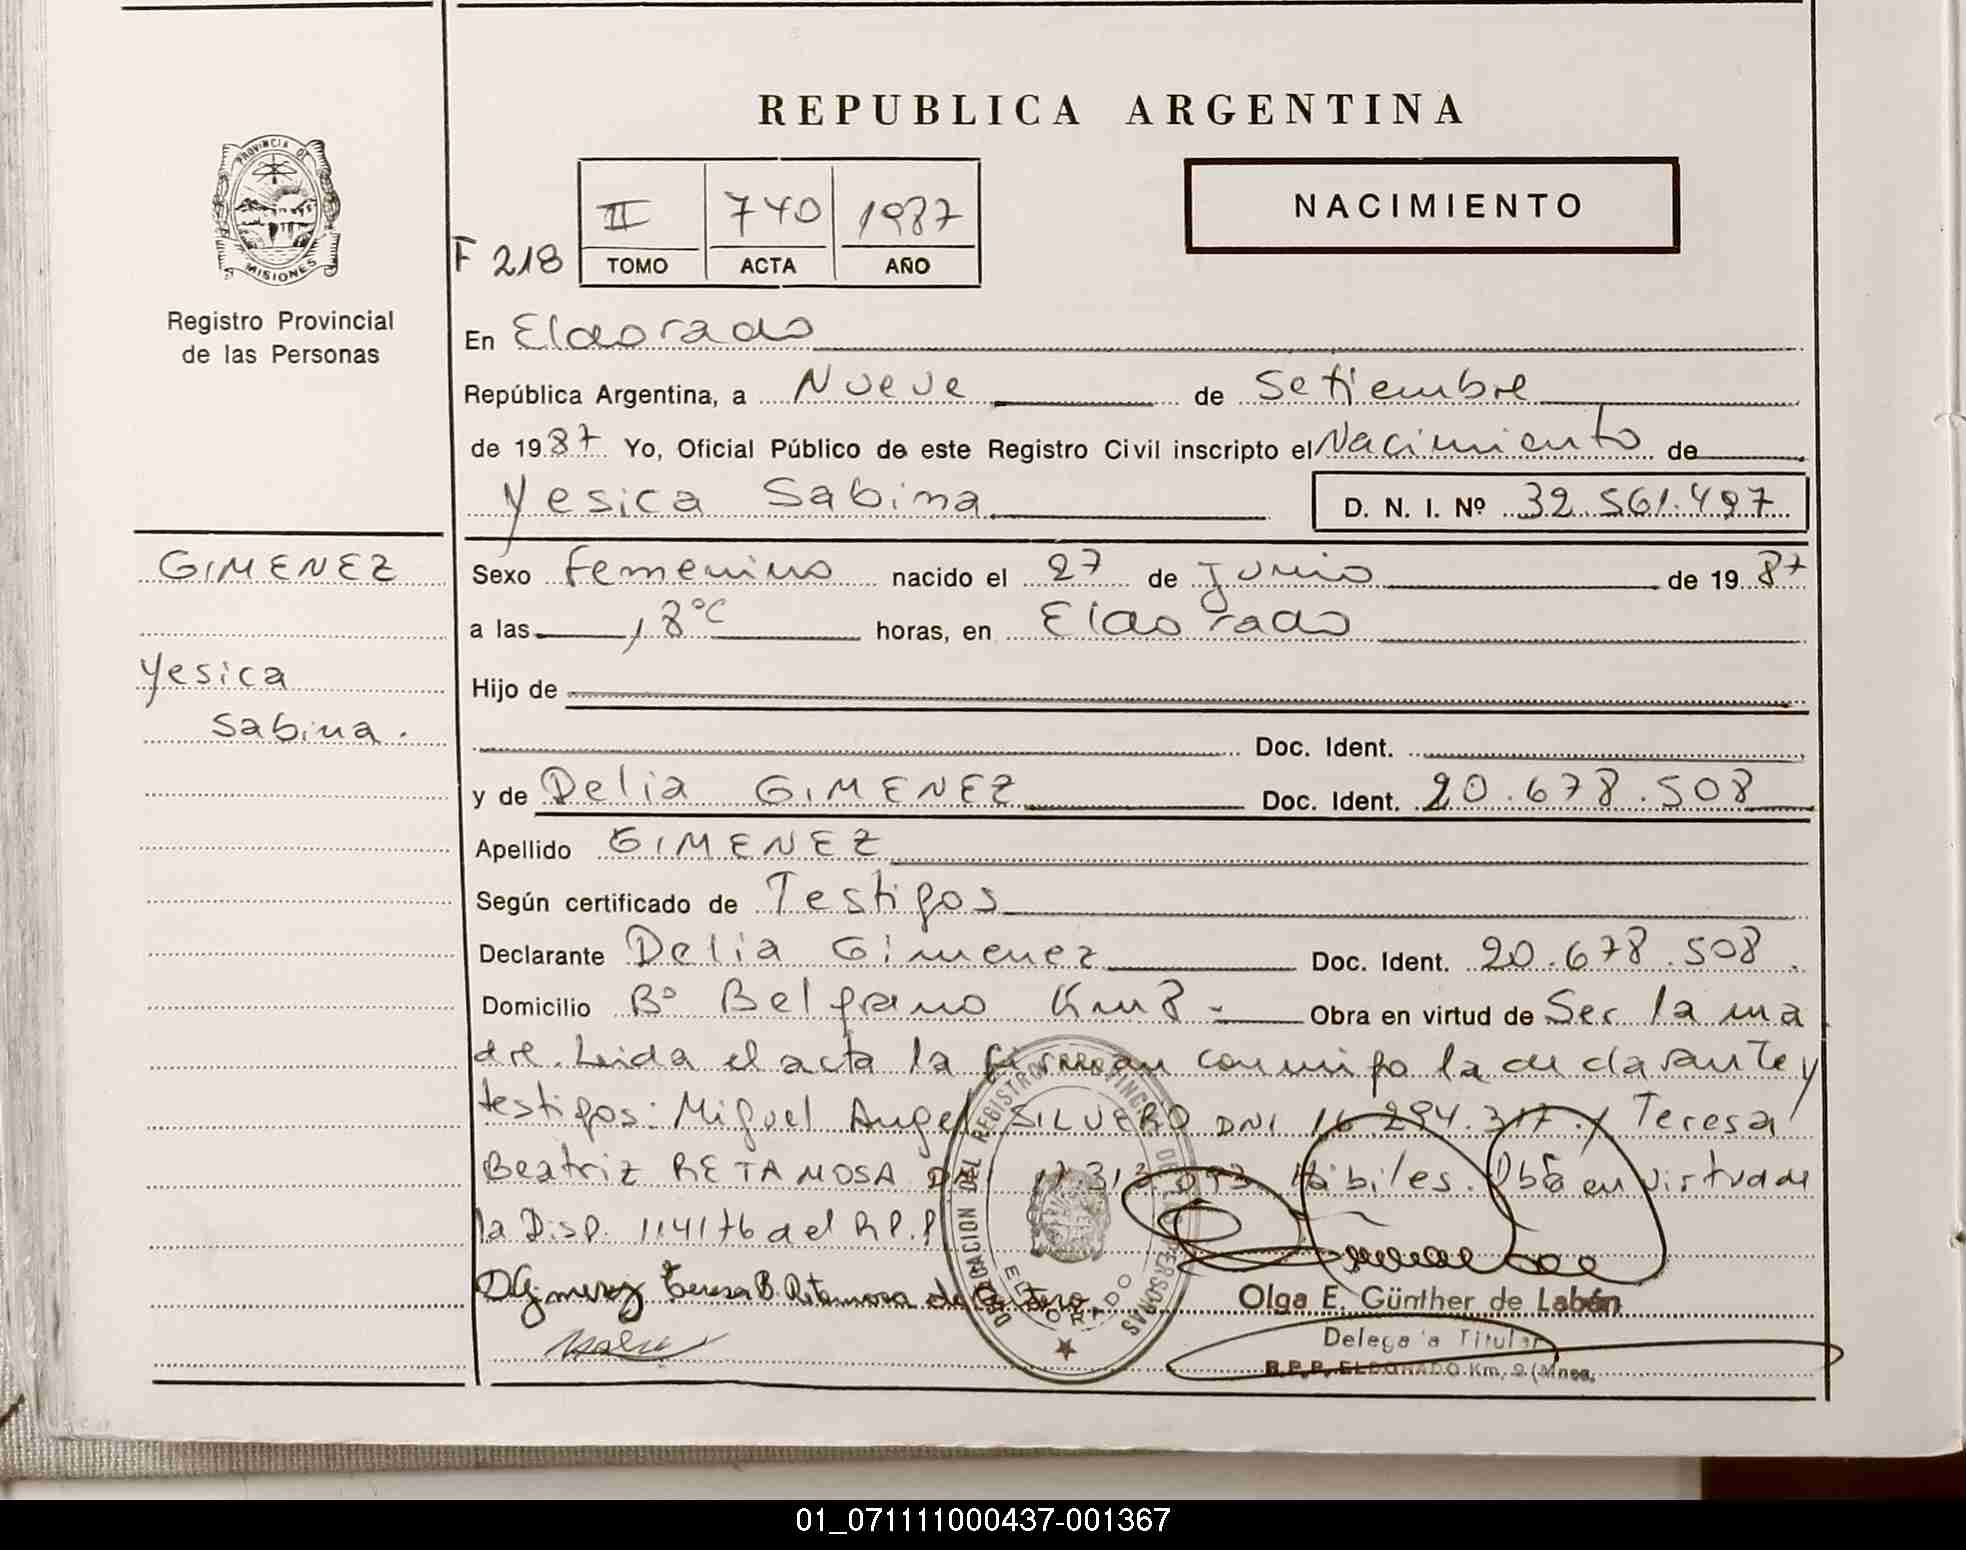 REPUBLICA ARGENTINA
PROVINCIA DE
MISIONES
Registro Provincial
de las Personas
F 218
II 740 1987
TOMO ACTA AÑO
NACIMIENTO
En Eldorado
República Argentina, a Nueve de Setiembre
de 1987 Yo, Oficial Público de este Registro Civil inscripto el Nacimiento de
Yesica Sabina D. N. I. Nº 32.561.497
GIMENEZ
Yesica
Sabina.
Sexo femenino nacido el 27 de Junio de 1987
a las 18 horas, en Eldorado
Hijo de
Doc. Ident.
y de Delia GIMENEZ Doc. Ident. 20.678.508
Apellido GIMENEZ
Según certificado de Testigos
Declarante Delia Gimenez Doc. Ident. 20.678.508.
Domicilio Bº Belgrano Km 8 - Obra en virtud de Ser la ma
dre. Leida el acta la firman conmigo la declarante y
testigos: Miguel Angel SILVERO DNI 16.294.317 y Teresa
Beatriz RETAMOSA Hábiles. Obra en virtud de
la Disp. 114176 del R.P.P
DGimenez Teresa B. Retamosa de
DELEGACION DEL REGISTRO PROVINCIAL DE LAS PERSONAS
ELDORADO
Olga E. Günther de Labán
Delegada Titular
R.P.P. ELDORADO Km. 9 (Mnes.
01_071111000437-001367